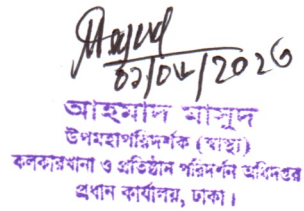 ০১/০৮/২০২৩
আহমাদ মাসুদ
উপমহাপরিদর্শক (স্বাস্থ্য)
কলকারখানা ও প্রতিষ্ঠান পরিদর্শন অধিদপ্তর
প্রধান কার্যালয়, ঢাকা।